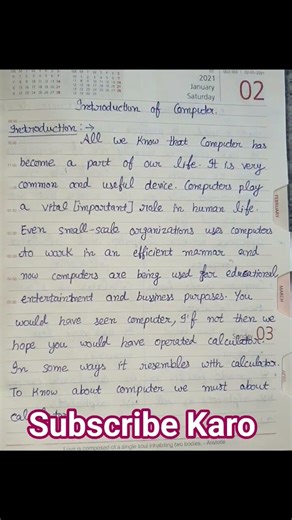 2021
January
Saturday
02
Introduction of Computer.
Introduction:→
All we know that Computer has
become a part of our life. It is very
common and useful device. Computers play
a vital [important] role in human life.
Even small-scale organizations uses computers
to work in an efficient mannar and
now computers are being used for educational,
entertainment and business purpases. You
would have seen computer, If not then we
hope you would have operated calculator.
03
In some ways it resembles with calculator.
To Know about computer we must about
FEBRUARY
MARCH
Subscribe Karo
Love is composed of a single soul inhabiting two bodies. - Aristotle